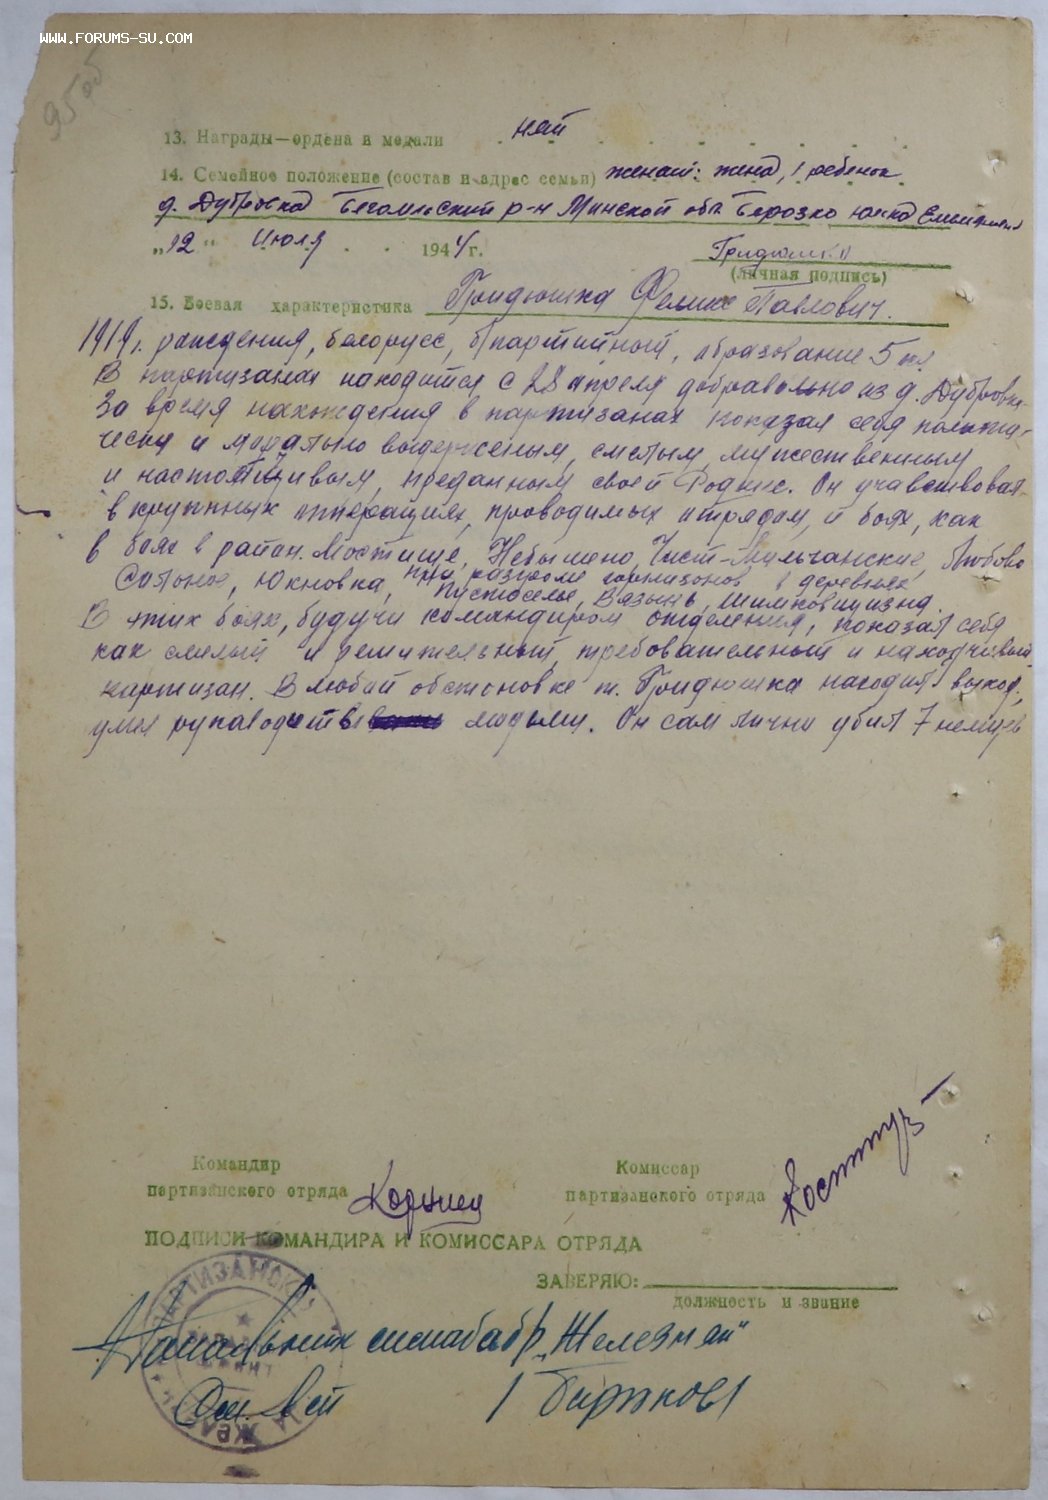 WWW.FORUMS-SU.COM
95 об
13. Награды—ордена и медали нет
14. Семейное положение (состав и адрес семьи) женат: жена, 1 ребенок
д. Дубровка Бегомльский р-н Минской обл.
„12“ Июля 1944 г.
(личная подпись)
15. Боевая характеристика Гридюшка Феликс Павлович.
1919 г. рождения, белорусс, б/партийный, образование 5 кл.
В партизанах находится с 28 апреля добравольно из д. Дубровка.
За время нахождения в партизанах показал себя полити-
чески и морально выдерженым, смелым, мужественным
и настойчивым, преданным своей Родине. Он учавствовал
в крупных операциях, проводимых отрядом, и боях, как
в боях в район. Мостище, Небышено, Чист-Мильчанские, Любово
Юхновка, при разгроме гарнизонов в деревнях
Пустоселье, Вязынь,
В этих боях, будучи командиром отделения, показал себя
как смелый и решительный, требовательный и находчивый
партизан. В любой обстоновке т. Гридюшка находил выход,
умел людьми. Он сам лично убил 7 немцев
Командир
партизанского отряда
Комиссар
партизанского отряда
ПОДПИСИ КОМАНДИРА И КОМИССАРА ОТРЯДА
ЗАВЕРЯЮ:
должность и звание
Начальник штаба бр. „Железняк“